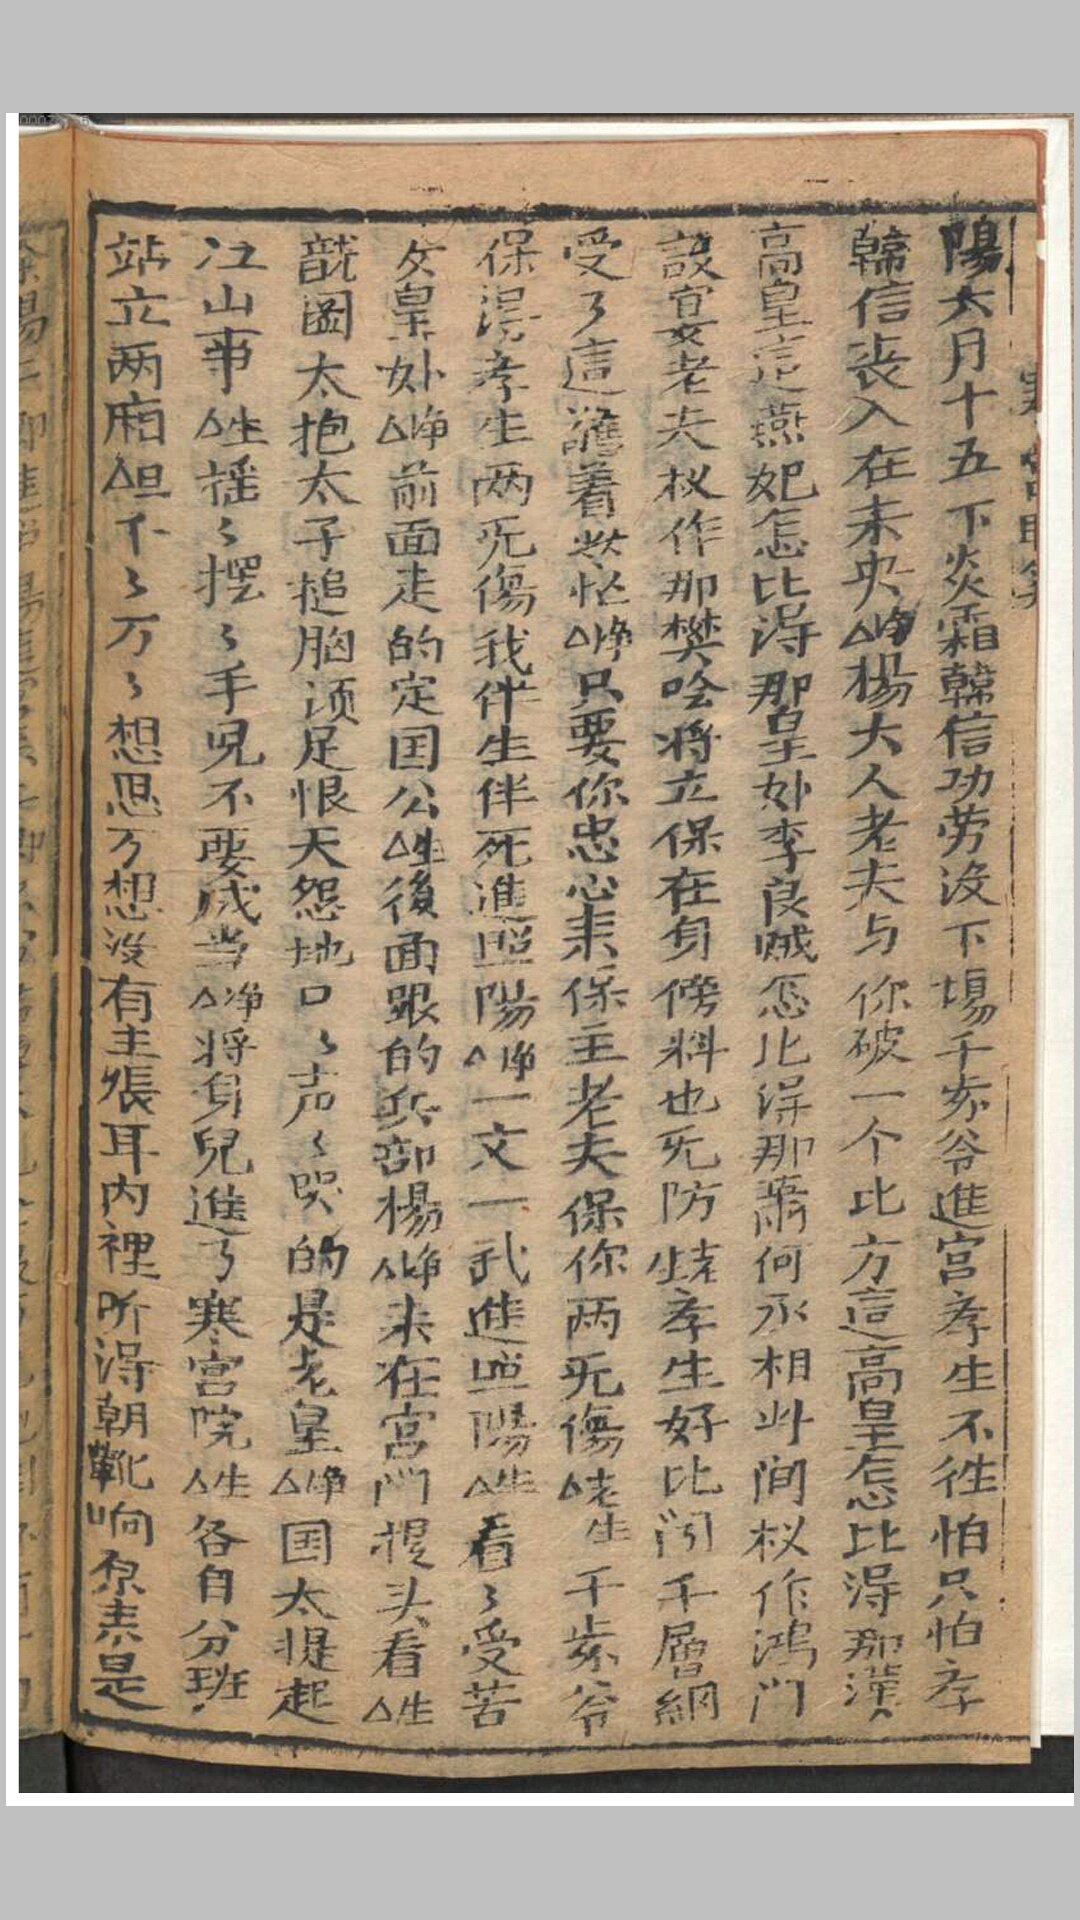 陽六月十五下炎霜韓信功劳没下場千岁爷進宫孝生不徃怕只怕孝
韓信丧入在未央△净楊大人老夫与你破一个比方這高皇怎比得那漢
高皇這燕妃怎比得那皇妙李良賊怎比得那蕭何丞相此间权作鸿门
設宴老夫权作那樊哙将立保在身傍料也无防生孝生好比闯千層網
受了這謊着怪△净只要你忠心耒保主老夫保你两无傷△生千岁爷
保得孝生两无傷我伴生伴死進照陽△净一文一武進照陽△生看了受苦
女皇妙△净前面走的定国公△生後面跟的兵部楊△净来在宫門提头看△生
戬國太抱太子搥胸顿足恨天怨地口〻声〻哭的是老皇△净国太提起
江山事△生摇〻摆〻手児不要成当△净将身兒進了寒宫院△生各自分班
站立两廂△旦不〻万〻想思万想没有主張耳內裡听得朝靴响原耒是